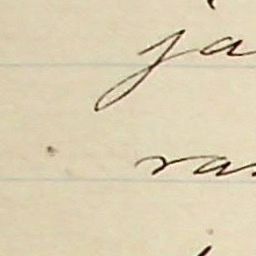 ja
ras